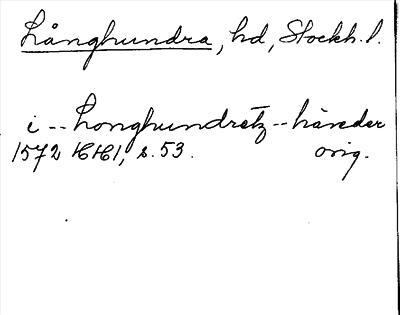 Långhundra, hd, Stockh. l.
i -- Longhundretz -- häreder
1572 HH1, s. 53. orig.